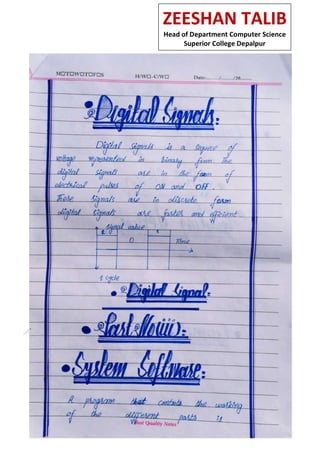 ZEESHAN TALIB
Head of Department Computer Science
Superior College Depalpur
MOTOWOTOFOS H/WO-C/WO Date:
Digital Signals:
Digital Signals is a sequence of
voltage represented in binary form The
digital signals are in the form of
electrical pulses of ON and OFF.
These signals are in discrete form
digital signals are faster and efficient
signal value
0
Time
1 Cycle
Digital Signal:
System Software:
A program that controls the working
of the different parts is
Best Quality Notes